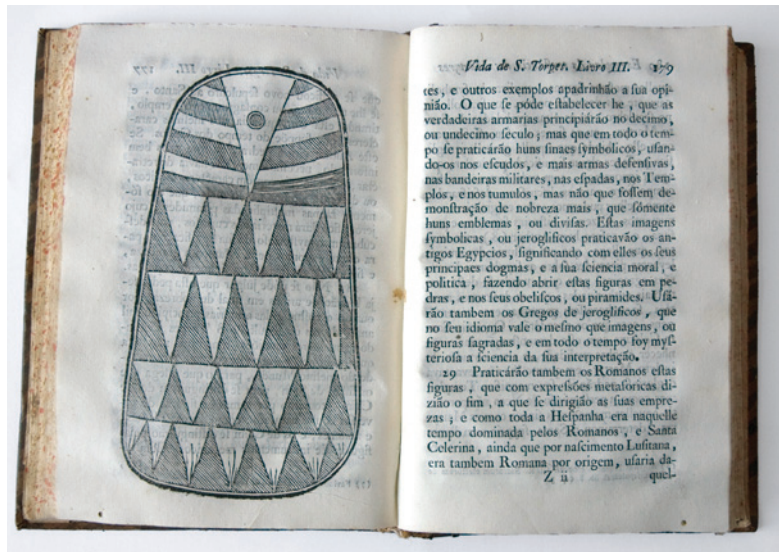 Vida de S. Torpet. Livro III. 179
tes, e outros exemplos apadrinhão a sua opi-
nião. O que se póde estabelecer he, que as
verdadeiras armarias principiárão no decimo,
ou undecimo seculo; mas que em todo o tem-
po se praticárão huns sinaes symbolicos, usan-
do-os nos escudos, e mais armas defensivas,
nas bandeiras militares, nas espadas, nos Tem-
plos, e nos tumulos, mas não que fossem de-
monstração de nobreza mais, que sómente
huns emblemas, ou divisas. Estas imagens
symbolicas, ou jeroglificos praticavão os an-
tigos Egypcios, significando com elles os seus
principaes dogmas, e a sua sciencia moral, e
politica, fazendo abrir estas figuras em pe-
dras, e nos seus obeliscos, ou piramides. Usá-
rão tambem os Gregos de jeroglificos, que
no seu idioma vale o mesmo que imagens, ou
figuras sagradas, e em todo o tempo foy mys-
teriosa a sciencia da sua interpretação.
29 Praticárão tambem os Romanos estas
figuras, que com expressões metaforicas di-
zião o fim, a que se dirigião as suas empre-
zas; e como toda a Hespanha era naquelle
tempo dominada pelos Romanos, e Santa
Celerina, ainda que por nascimento Lusitana,
era tambem Romana por origem, usaria da-
Z ii quel-